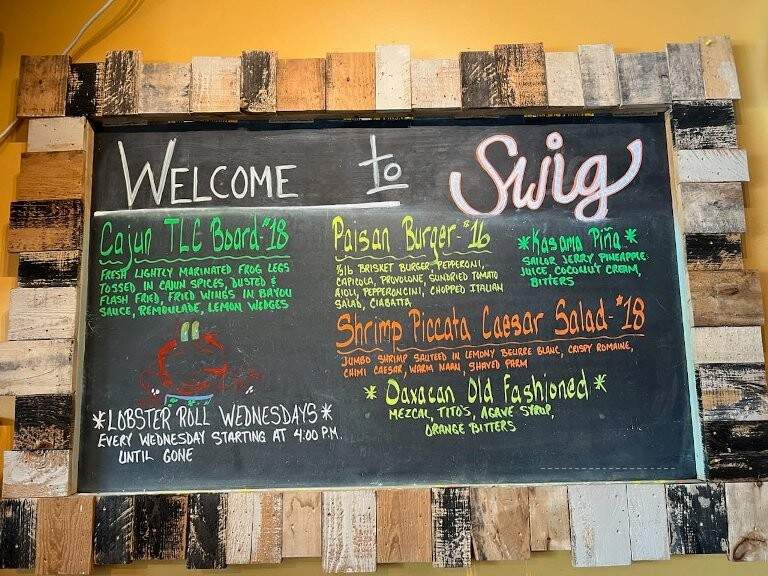 WELCOME to Swig
Cajun TLC Board - $18
FRESH LIGHTLY MARINATED FROG LEGS
TOSSED IN CAJUN SPICES, DUSTED &
FLASH FRIED, FRIED WINGS IN BAYOU
SAUCE, REMOULADE, LEMON WEDGES
*LOBSTER ROLL WEDNESDAYS*
EVERY WEDNESDAY STARTING AT 4:00 P.M.
UNTIL GONE
Paisan Burger - $16
1/3 lb BRISKET BURGER, PEPPERONI,
CAPICOLA, PROVOLONE, SUNDRIED TOMATO
AIOLI, PEPPERONCINI, CHOPPED ITALIAN
SALAD, CIABATTA
*Kasama Piña*
SAILOR JERRY, PINEAPPLE
JUICE, COCONUT CREAM,
BITTERS
Shrimp Piccata Caesar Salad - $18
JUMBO SHRIMP SAUTEED IN LEMONY BEURRE BLANC, CRISPY ROMAINE,
CHIMI CAESAR, WARM NAAN, SHAVED PARM
*Oaxacan Old Fashioned*
MEZCAL, TITO'S, AGAVE SYRUP,
ORANGE BITTERS